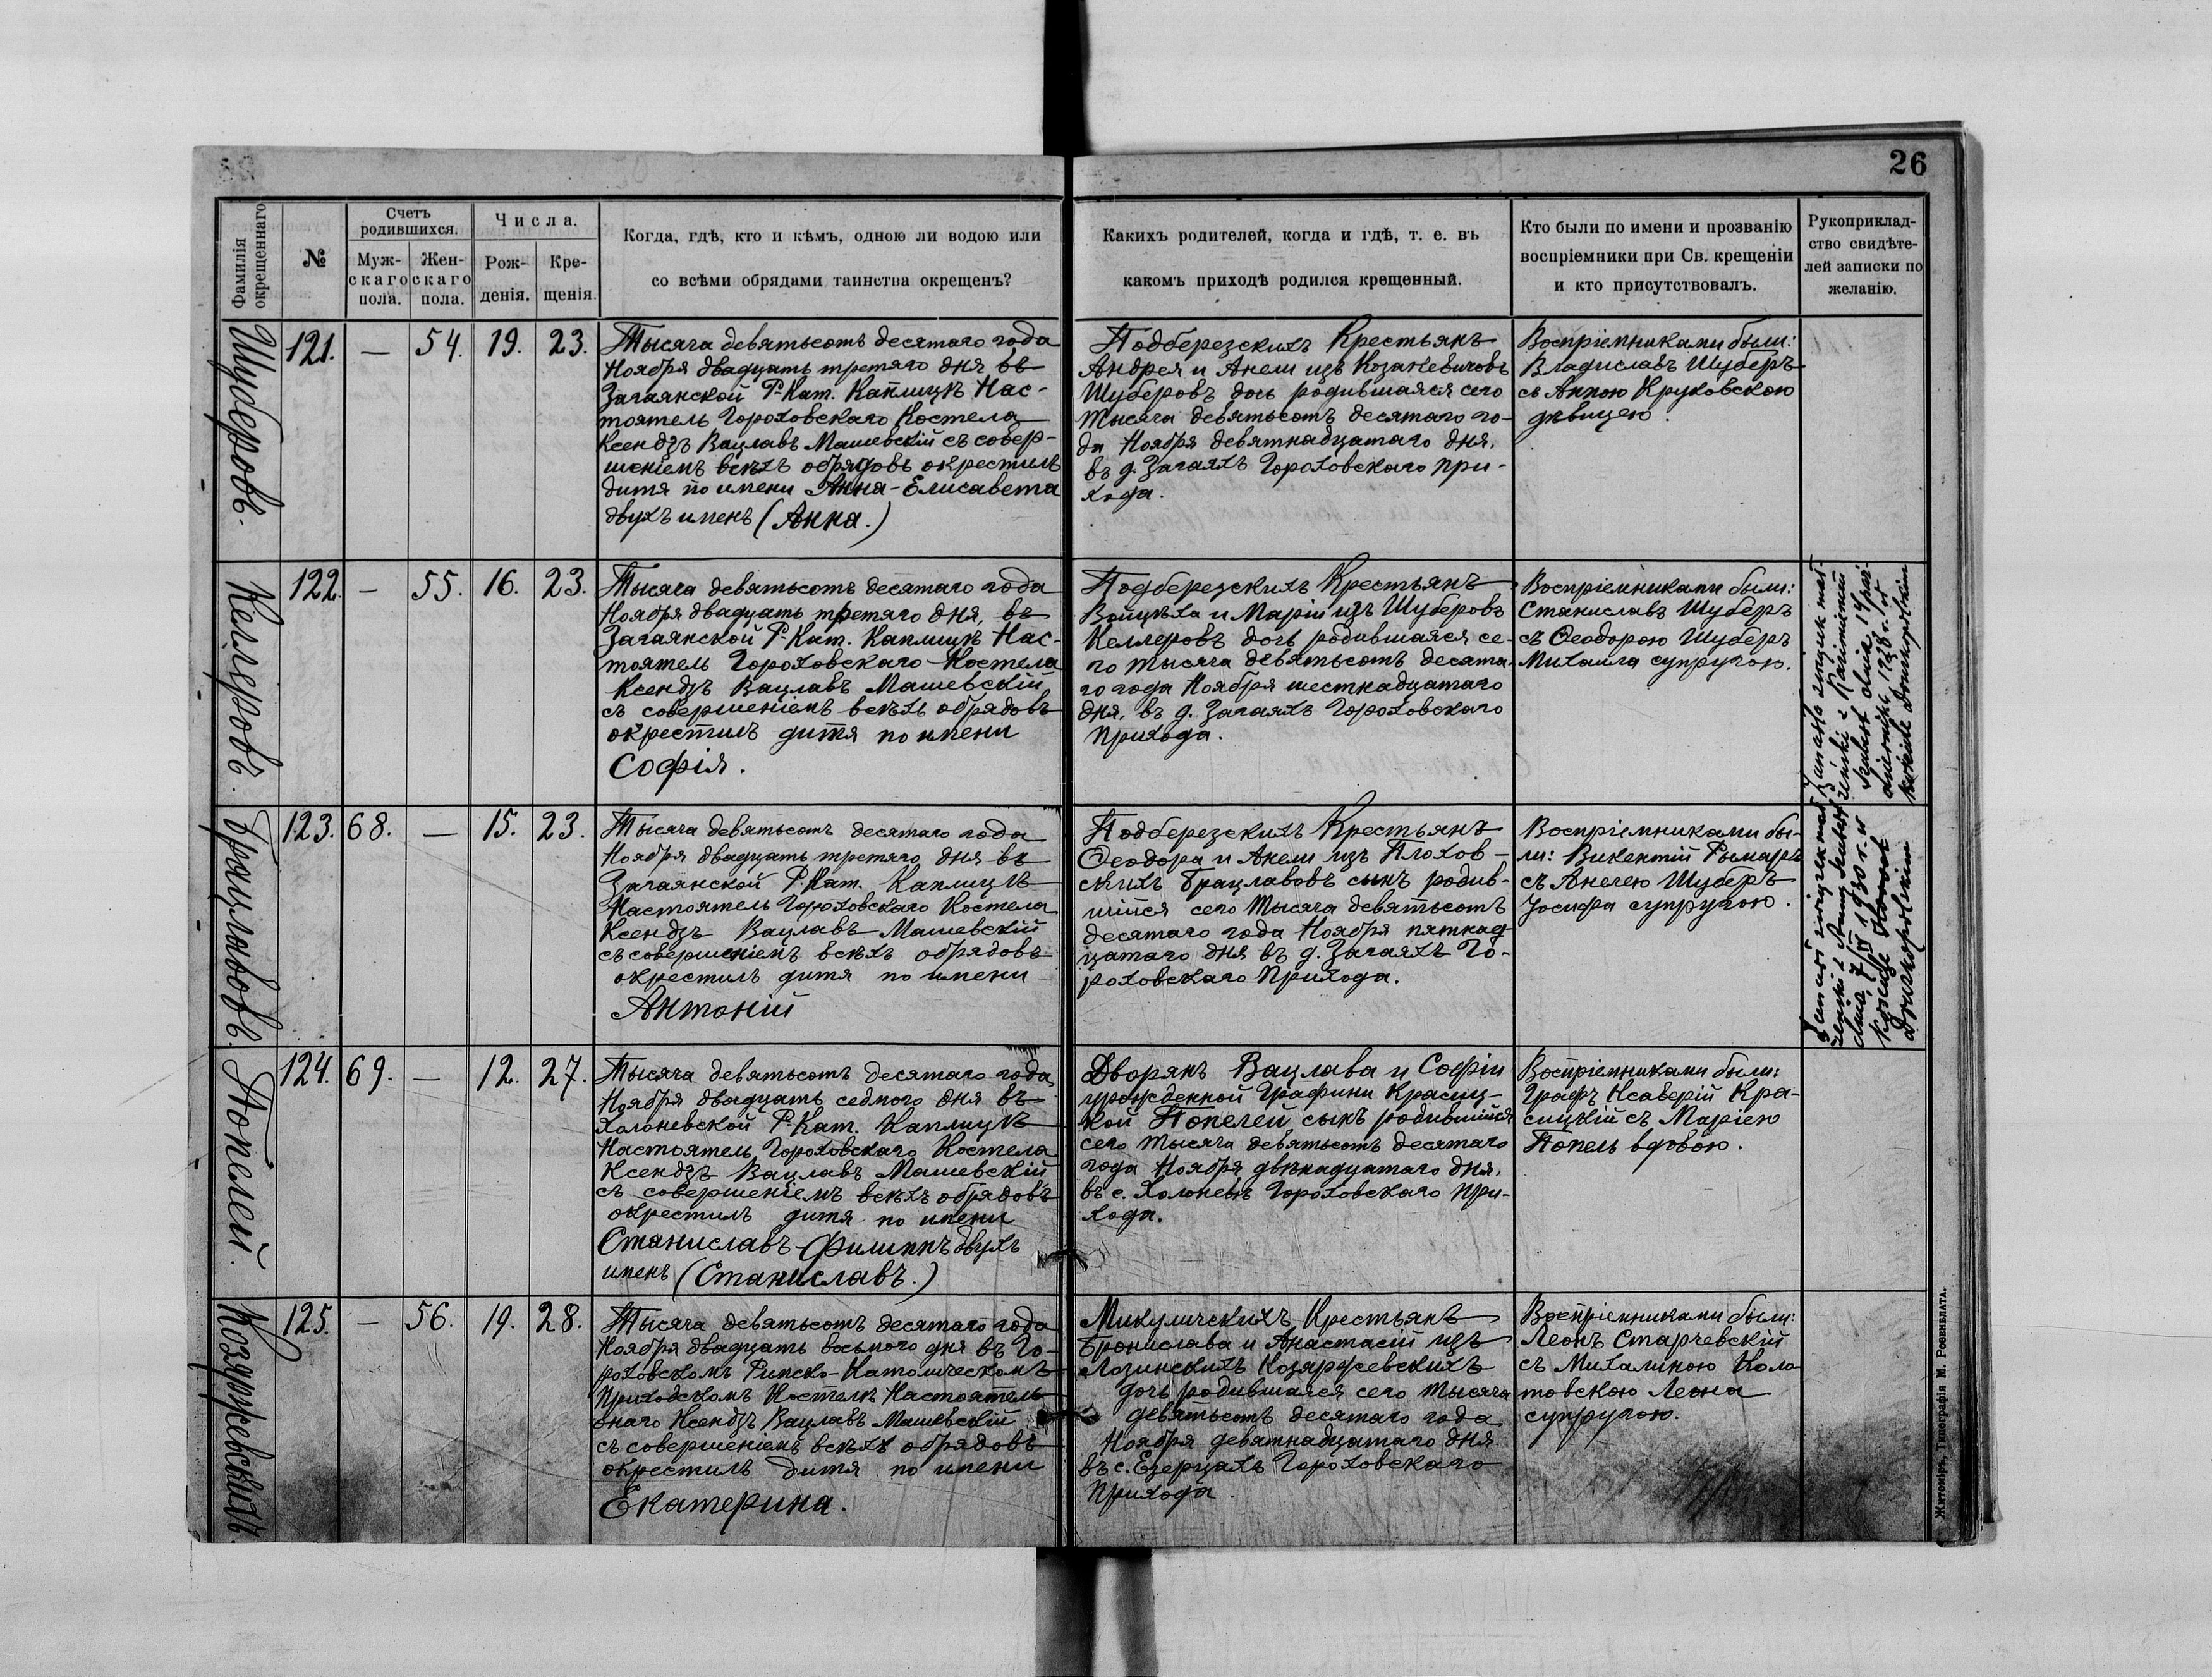 26
Фамилія
окрещеннаго
№
Счетъ
родившихся.
Муж-
скаго
пола.
Жен-
скаго
пола.
Числа.
Рож-
денія.
Кре-
щенія.
Когда, гдѣ, кто и кѣмъ, одною ли водою или
со всѣми обрядами таинства окрещенъ?
Какихъ родителей, когда и гдѣ, т. е. въ
какомъ приходѣ родился крещенный.
Кто были по имени и прозванію
воспріемники при Св. крещеніи
и кто присутствовалъ.
Рукоприклад-
ство свидѣте-
лей записки по
желанію.
Шуберовъ.
121. — 54. 19. 23.
Тысяча девятьсотъ десятаго года
Ноября двадцать третяго дня въ
Загаянской Р-Кат. Каплицѣ Нас-
тоятель Гороховскаго Костела
Ксендзъ Вацлавъ Машевскій съ совер-
шеніемъ всѣхъ обрядовъ окрестилъ
дитя по имени Анна-Елисавета
двухъ именъ (Анна.)
Подберезскихъ Крестьянъ
Андрея и Анели изъ Козакевичовъ
Шуберовъ дочь родившаяся сего
тысяча девятьсотъ десятаго го-
да Ноября девятнадцатаго дня,
въ д. Загаяхъ Гороховскаго при-
хода.
Воспріемниками были:
Владиславъ Шуберъ
съ Анною Круковскою
дѣвицею.
Келлеровъ.
122. — 55. 16. 23.
Тысяча девятьсотъ десятаго года
Ноября двадцать третяго дня, въ
Загаянской Р-Кат. Каплицѣ Нас-
тоятель Гороховскаго Костела
Ксендзъ Вацлавъ Машевскій
съ совершеніемъ всѣхъ обрядовъ
окрестилъ дитя по имени
Софія.
Подберезскихъ Крестьянъ
Войцѣха и Маріи изъ Шуберовъ
Келлеровъ дочь родившаяся се-
го тысяча девятьсотъ десята-
го года Ноября шестнадцатаго
дня, въ д. Загаяхъ Гороховскаго
Прихода.
Воспріемниками были:
Станиславъ Шуберъ
съ Ѳеодорою Шуберъ
Михаила супругою.
Брацлавовъ.
123. 68. — 15. 23.
Тысяча девятьсотъ десятаго года
Ноября двадцать третяго дня въ
Загаянской Р-Кат. Каплицѣ
Настоятель Гороховскаго Костела
Ксендзъ Вацлавъ Машевскій
съ совершеніемъ всѣхъ обрядовъ
окрестилъ дитя по имени
Антоній
Подберезскихъ Крестьянъ
Ѳеодора и Анели изъ Плохов-
скихъ Брацлавовъ сынъ родив-
шійся сего тысяча девятьсотъ
десятаго года Ноября пятнад-
цатаго дня въ д. Загаяхъ Го-
роховскаго Прихода.
Воспріемниками бы-
ли: Викентій Рымаръ
съ Анелею Шуберъ
Іосифа супругою.
Попелей.
124. 69. — 12. 27.
Тысяча девятьсотъ десятаго года
Ноября двадцать седмого дня въ
Холоневской Р-Кат. Каплицѣ
Настоятель Гороховскаго Костела
Ксендзъ Вацлавъ Машевскій
съ совершеніемъ всѣхъ обрядовъ
окрестилъ дитя по имени
Станиславъ-Филиппъ двухъ
именъ (Станиславъ.)
Дворянъ Вацлава и Софіи
урожденной Графини Красиц-
кой Попелей сынъ родившійся
сего тысяча девятьсотъ десятаго
года Ноября двѣнадцатаго дня,
въ с. Холоневѣ Гороховскаго при-
хода.
Воспріемниками были:
Графъ Ксаверій Кра-
сицкій съ Маріею
Попель вдовою.
125. — 56. 19. 28.
Тысяча девятьсотъ десятаго года
Ноября двадцать восьмого дня въ Го-
роховскомъ Римско-Католическомъ
Приходскомъ Костелѣ Настоятель
онаго Ксендзъ Вацлавъ Машевскій
съ совершеніемъ всѣхъ обрядовъ
окрестилъ дитя по имени
Екатерина.
Микуличскихъ Крестьянъ
Бронислава и Анастасіи изъ
Лозинскихъ
дочь родившаяся сего тысяча
девятьсотъ десятаго года
Ноября девятнадцатаго дня
въ с. Езерцахъ Гороховскаго
Прихода.
Воспріемниками были:
Леонъ Старчевскій
съ Михалиною Коло-
товскою Леона
супругою.
Житоміръ, Типографія М. Роненблата.